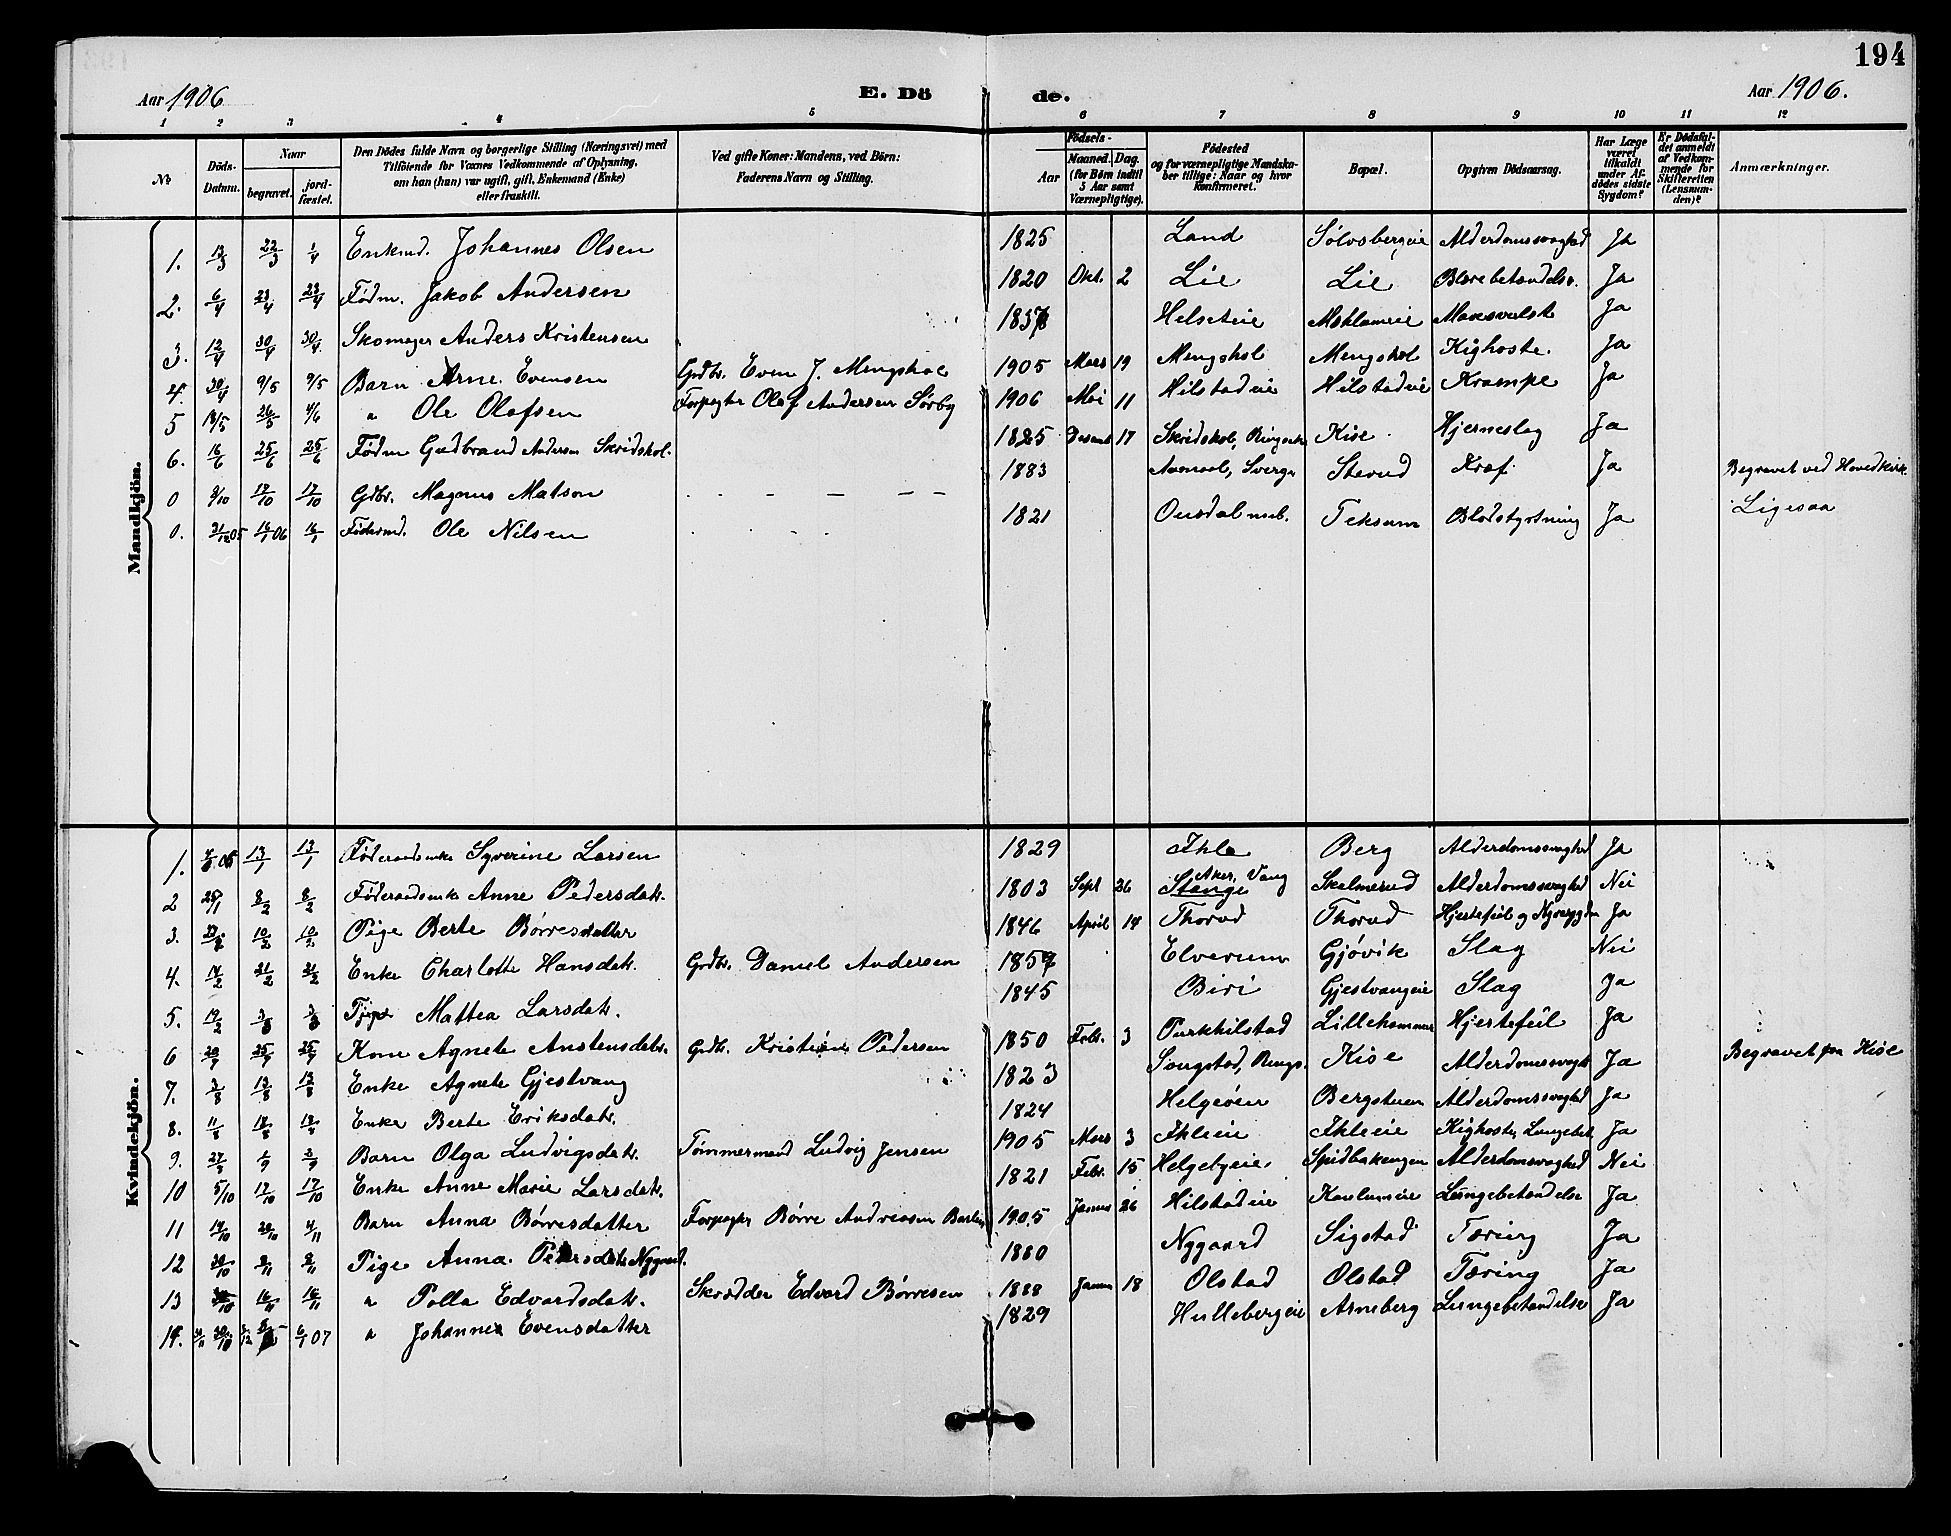 194
Aar 1906
E. Dö de.
Aar 1906.
1 2 3 4 5 6 7 8 9 10 11 12
No
Döds-Datum.
Naar
begravet.
jord-fæstet.
Den Dödes fulde Navn og borgerlige Stilling (Næringsvei) med
Tilföiende for Voxnes Vedkommende af Oplysning,
om han (hun) var ugift, gift, Enkemand (Enke)
eller fraskilt.
Ved gifte Koner: Mandens, ved Börn:
Faderens Navn og Stilling.
Födsels-
Aar
Maaned. Dag.
(for Börn indtil
5 Aar samt
Værnepligtige).
Födested
og for værnepligtige Mandska-
ber tillige: Naar og hvor
Konfirmeret.
Bopæl.
Opgiven Dödsaarsag.
Har Læge
været
tilkaldt
under Af-
dödes sidste
Sygdom?
Er Dödsfal-
det anmeldt
af Vedkom-
mende for
Skifteretten
(Lensman-
den)?
Anmærkninger.
Mandkjön.
1. 13/3 22/3 1/4 Enkmd. Johannes Olsen 1825 Land Sölvsbergeie Alderdomssvaghed Ja
2. 6/4 23/4 23/4 Födm. Jakob Andersen 1820 Okt. 2 Lie Lie Blærebetændelse. Ja
3. 12/4 30/4 30/4 Skomager Anders Kristensen Helseteie Ja
4. 30/4 9/5 9/5 Barn Arne Evensen Grdbr. Even J. Mengshol 1905 Mars 19 Mengshol Mengshol Kighoste. Ja
5 18/5 26/5 4/6 " Ole Olafsen Forpagter Olaf Andersen Sörby 1906 Mai 11 Hilstadeie Hilstadeie Krampe Ja
6. 16/6 25/6 25/6 Födm Gudbrand Andersen Skridshol. 1825 17 Skridshol, Ringsaker Kise Hjerneslag Ja
0 9/10 17/10 17/10 Gdbr. Magnus Matson - - - - 1883 Sverge Sterud Kræf. Ja Begravet ved Hovedkirk.
0. 31/12 05 16/1 06 16/1 Födermd. Ole Nilsen 1821 Teksum Blodstyrtning Ja Ligesaa
Kvindekjön.
1. 05 13/1 13/1 Föderaadsenke Syverine Larsen 1829 Ihle Berg Alderdomssvaghed Ja
2 25/1 8/2 8/2 Föderaadsenke Anne Pedersdatr. 1803 Sept 26 Stange Aker, Vang Skelmerud Alderdomssvaghed Nei
3. 10/2 10/2 Pige Berte Börresdatter 1846 April 18 Thorud Thorud Hjertefeil og Ja
4. 14/2 21/2 21/2 Enke Charlotte Hansdatr. Grdbr. Daniel Andersen Elverum Gjövik Slag Nei
5. 19/2 3/3 3/3 Mattea Larsdatr. 1845 Biri Gjestvangeie Slag Ja
6 25/7 25/7 Kone Agnete Anstensdatr. Grdbr. Kristian Pedersen 1850 Febr. 3 Purkhilstad Lillehammer Hjertefeil Ja
7. 3/8 13/8 13/8 Enke Agnete Gjestvang 1823 Kise Alderdomssvaghd Ja Begravet paa Kise
8. 11/8 18/8 Enke Berte Eriksdatr. 1824 Helgeöen Bergstuen Alderdomssvaghed Ja
9. 27/8 Barn Olga Ludvigsdatr. Tömmermand Ludvig Jensen 1905 Mars 3 Ihleie Ihleie Kighoste, Lungebet Ja
10 5/10 17/10 17/10 Enke Anne Marie Larsdatr. 1821 Febr. 15 Helgebyeie. Spidbakengen Alderdomssvaghed Nei
11 Barn Anna Börresdatter Forpagter Börre Andreasen 1905 Januar 26 Hilstadeie Lungebetændelse Ja
12 30/10 8/11 8/11 Pige Anna Petersdatr Nygaard. 1880 Nygaard Sigstad Tæring Ja
13 16/11 16/11 " Palla Edvardsdatr. Skrædder Edvard Börresen 1888 Januar 18 Olstad Olstad Tæring Ja
14. 6/1 07 " Johanne Evensdatter 1829 Hullebergeie Arneberg Lungebetændelse Ja